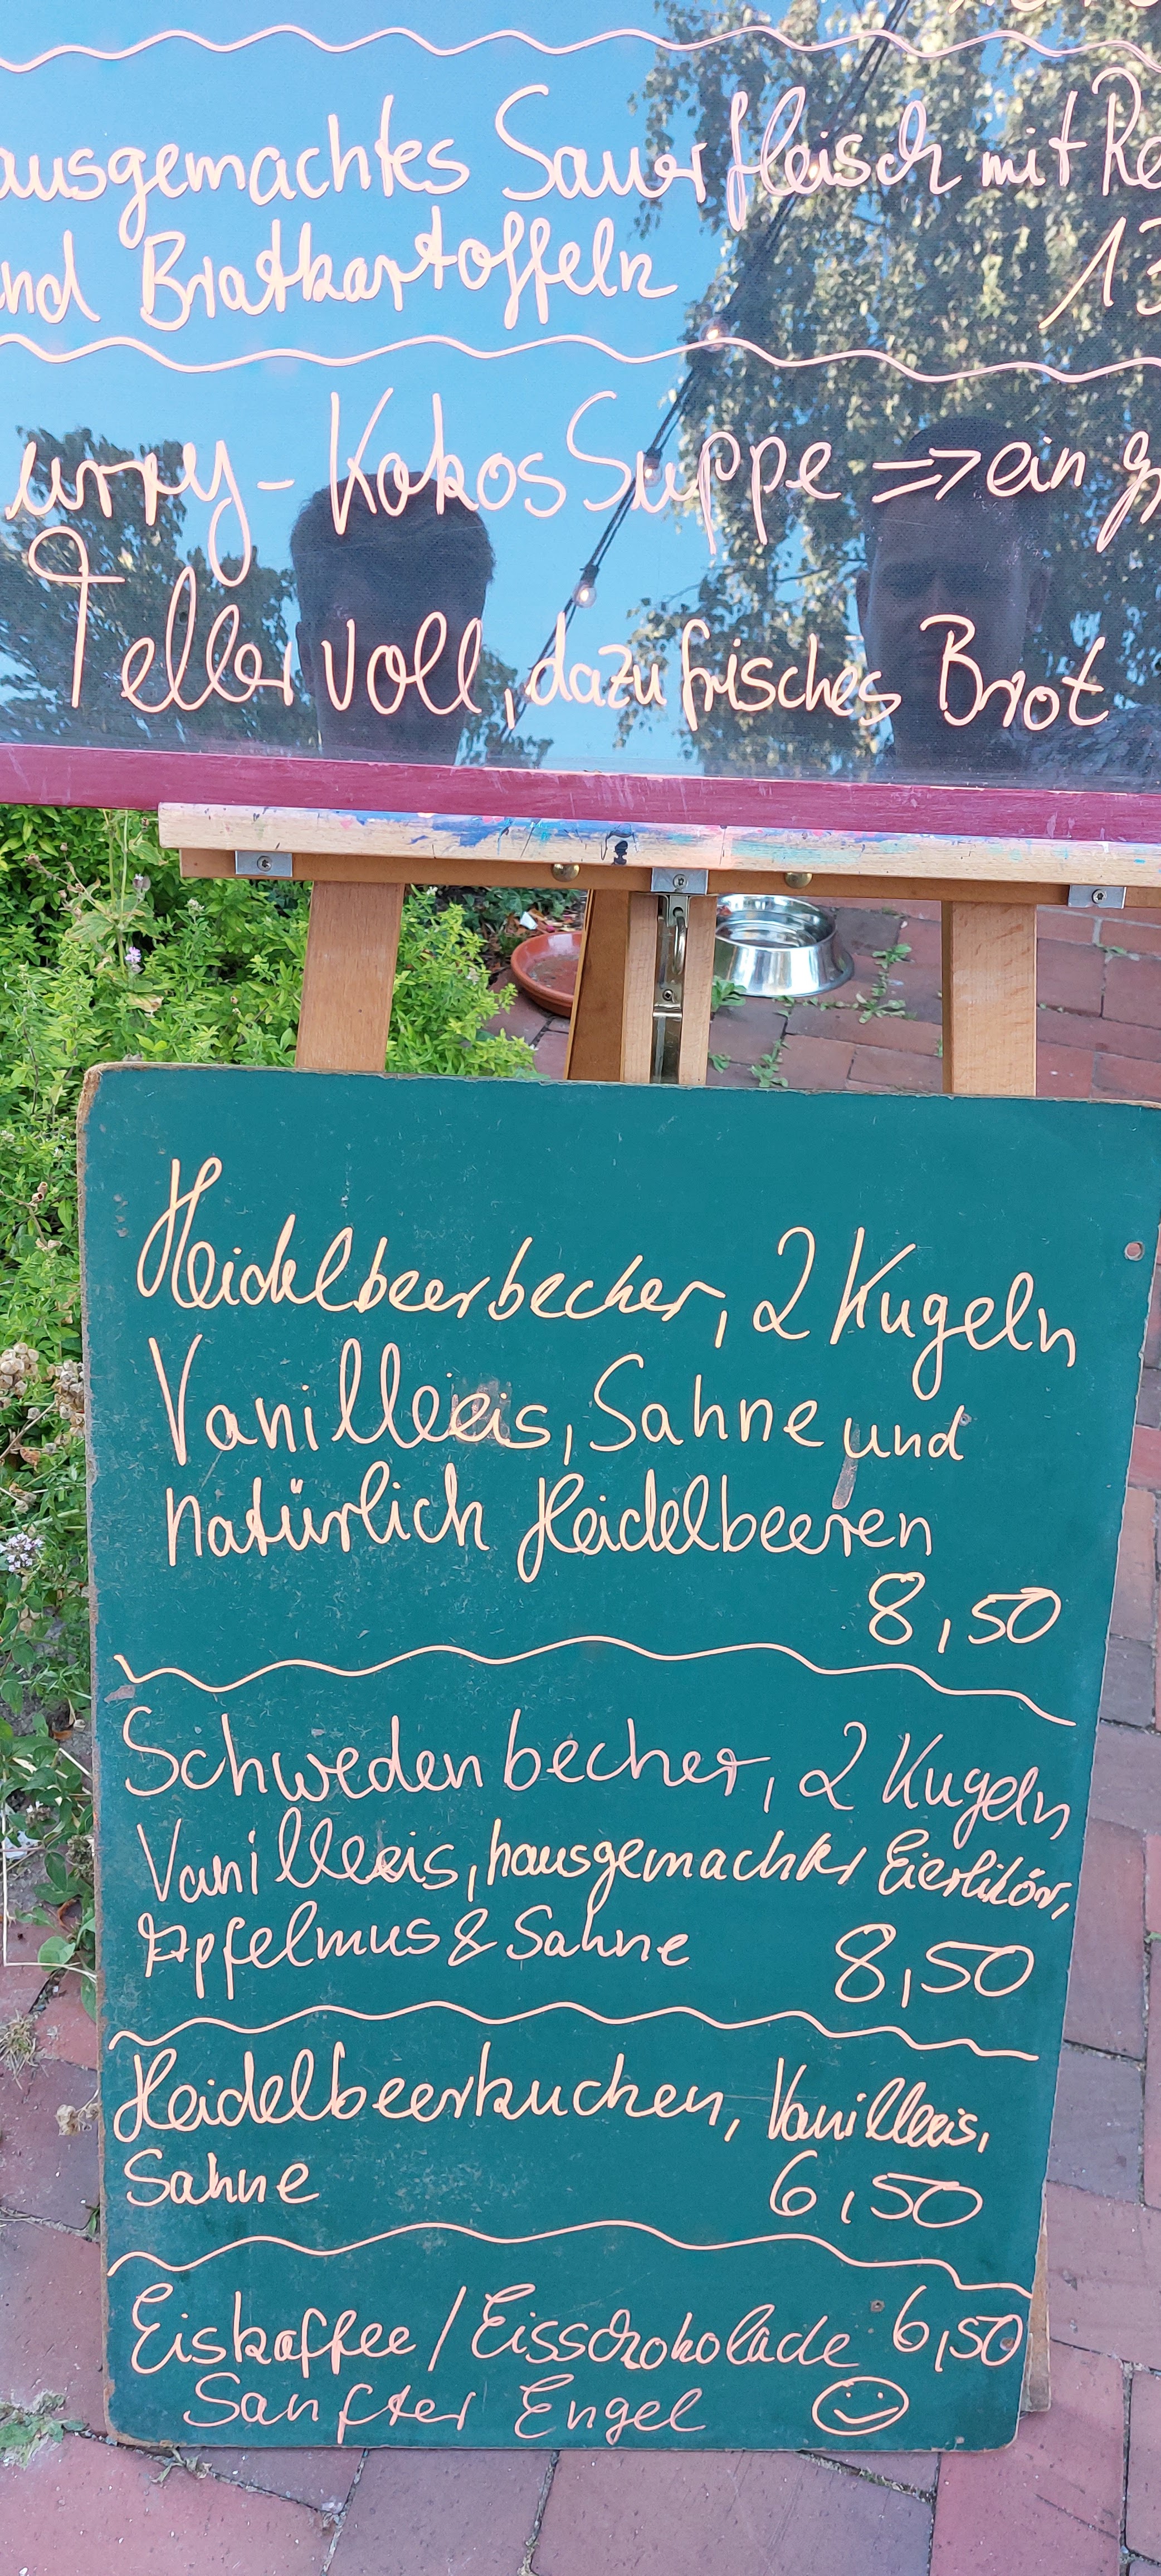 ausgemachtes Sauerfleisch mit Re
nd Bratkartoffeln 13
urry-Kokos Suppe => ein g
Teller voll, dazu frisches Brot
Heidelbeerbecher, 2 Kugeln
Vanilleeis, Sahne und
natürlich Heidelbeeren
8,50
Schwedenbecher, 2 Kugeln
Vanilleeis, hausgemachter Eierlikör,
Apfelmus & Sahne 8,50
Heidelbeerkuchen, Vanilleeis,
Sahne 6,50
Eiskaffee / Eisschokolade 6,50
Sanfter Engel